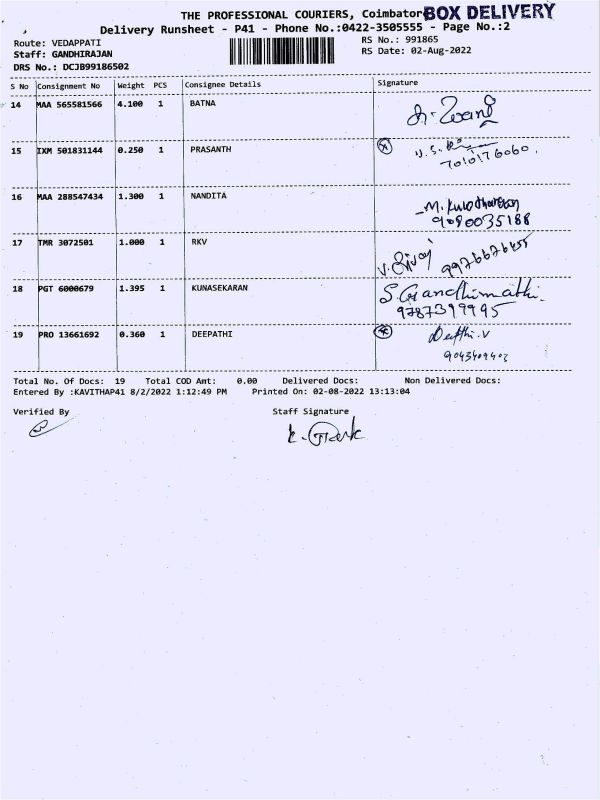 THE PROFESSIONAL COURIERS, Coimbator BOX DELIVERY
Delivery Runsheet - P41 - Phone No.:0422-3505555 - Page No.:2
Route: VEDAPPATI RS No.: 991865
Staff: GANDHIRAJAN RS Date: 02-Aug-2022
DRS No.: DCJB99186502
S No Consignment No Weight PCS Consignee Details Signature
14 MAA 565581566 4.100 1 BATNA
15 IXM 501831144 0.250 1 PRASANTH
7010176060.
16 MAA 288547434 1.300 1 NANDITA
9080035188
17 TMR 3072501 1.000 1 RKV
9976676455
18 PGT 6000679 1.395 1 KUNASEKARAN S.Gandhimathi.
9787399995
19 PRO 13661692 0.360 1 DEEPATHI Deepthi.V
Total No. Of Docs: 19 Total COD Amt: 0.00 Delivered Docs: Non Delivered Docs:
Entered By :KAVITHAP41 8/2/2022 1:12:49 PM Printed On: 02-08-2022 13:13:04
Verified By Staff Signature